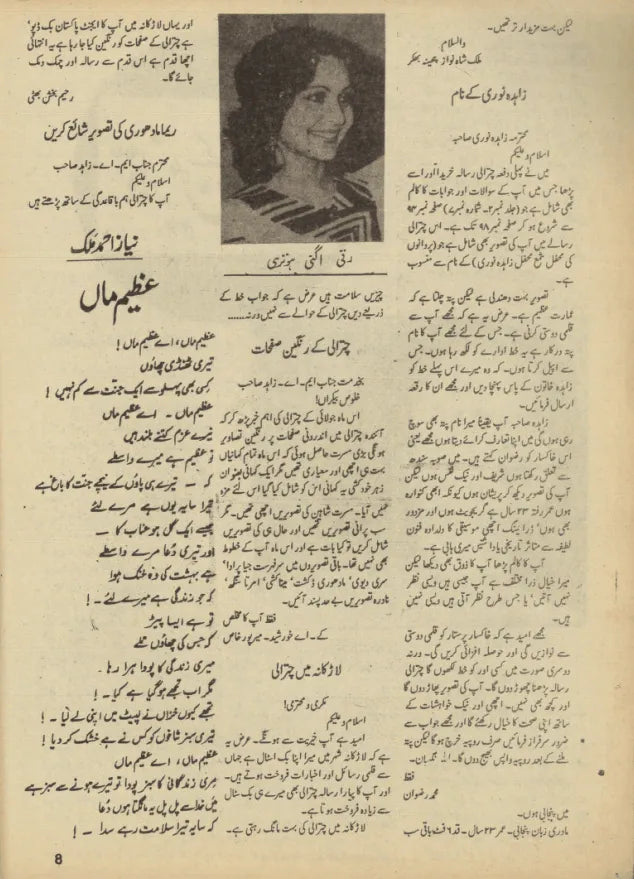 لیکن بہت مزیدار تر تھیں۔
والسلام
ملک شاہ نواز چھینہ بھکر
زاہدہ نوری کے نام
محترمہ زاہدہ نوری صاحبہ
اسلام وعلیکم
میں نے پہلی دفعہ چترالی رسالہ خریدا اور اسے
پڑھا جس میں آپ کے سوالات اور جوابات کا کالم
بھی شامل ہے جو (جلد نمبر ۲۔ شمارہ نمبر ۷) صفحہ نمبر ۹۳
سے شروع ہو کر صفحہ نمبر ۹۸ تک ہے۔ اس چترالی
رسالے میں آپ کی تصویر بھی شامل ہے جو (پروانوں
کی محفل شمع محفل زاہدہ نوری) کے نام سے منسوب
ہے۔
تصویر بہت دھندلی ہے لیکن پتہ چلتا ہے کہ
عمارت عظیم ہے۔ عرض یہ ہے کہ مجھے آپ سے
قلمی دوستی کرنی ہے۔ جس کے لئے مجھے آپ کا نام
پتہ درکار ہے یہ خط ادارے کو لکھ رہا ہوں۔ جس
سے اپیل کرتا ہوں۔ کہ وہ میرے اس پہلے خط کو
زاہدہ خاتون کے پاس پہنچا دیں اور مجھے ان کا رقعہ
ارسال فرمائیں۔
زاہدہ صاحبہ آپ یقیناً میرا نام پتہ بھی سوچ
رہی ہوں گی میں اپنا تعارف کرائے دیتا ہوں مجھے یعنی
اس خاکسار کو رضوان کہتے ہیں۔ میں صوبہ سندھ
سے تعلق رکھتا ہوں شریف اور نیک شخص ہوں لیکن
آپ کی تصویر دیکھ کر پریشان ہوں کیونکہ ابھی کنوارہ
ہوں عمر رفتہ ۲۳ سال ہے گریجویٹ ہوں اور مزدور
بھی ہوں' ڈرائینگ اچھی موسیقی کا دلدادہ فنون
لطیفہ سے متاثر تاریخی یادداشتیں میری ہابی ہے۔
آپ کا کالم پڑھا آپ کا ذوق بھی دیکھا لیکن
میرا خیال ذرا مختلف ہے آپ جیسی ہیں ویسی نظر
نہیں آتیں' یا جس طرح نظر آتی ہیں ویسی نہیں
ہیں۔
مجھے امید ہے کہ خاکسار پرستار کو قلمی دوستی
سے نوازیں گی اور حوصلہ افزائی کریں گی۔ ورنہ
دوسری صورت میں کسی اور کو خط لکھوں گا چترالی
رسالہ پڑھنا چھوڑ دوں گا۔ آپ کی تصویر پھاڑ دوں گا
اور کچھ بھی نہیں۔ اچھی اور نیک خواہشات کے
ساتھ اپنی صحت کا خیال رکھئے گا اور مجھے جواب سے
ضرور سرفراز فرمائیں صرف روپیہ خرچ ہو گا لیکن پتہ
ملنے کے بعد روپیہ واپس بھیج دوں گا۔ اللہ نگہبان۔
فقط
محمد رضوان
میں پنجابی ہوں۔
مادری زبان پنجابی۔ عمر ۲۳ سال۔ قد ۶ فٹ باقی سب
رتی اگنی ہوتری
چیزیں سلامت ہیں عرض ہے کہ جواب خط کے
ذریعے دیں چترالی کے حوالے سے نہیں ورنہ......
چترالی کے رنگین صفحات
بخدمت جناب ایم۔ اے۔ زاہد صاحب
خلوص بیکراں!
اس ماہ جولائی کے چترالی کی اہم خبر پڑھ کر کہ
آئندہ چترالی میں اندرونی صفحات پر رنگین تصاویر
ہونگی بڑی مسرت حاصل ہوئی کہ اس ماہ تمام کہانیاں
بہت ہی اچھی اور معیاری تھیں مگر ایک کہانی بعنوان
زہر خود کشی یہ کہانی اس کو شامل کیا گیا اس لئے مزہ
نہیں آیا۔ مسرت شاہین کی تصویریں اچھی تھیں۔ مگر
سب پرانی تصویریں تھیں اور حال ہی کی تصویریں
شامل کریں تو کیا بات ہے اور اس ماہ آپ کے خطوط
بھی نہیں تھا۔ باقی تصویروں میں سرفہرست جیا پرادا'
سری دیوی' مادھوری ڈکشت' میناکشی' امرتا سنگھ'
نادرہ تصویریں بے حد پسند آئیں۔
فقط آپ کا مخلص
کے۔ اے خورشید۔ میرپور خاص
لاڑکانہ میں چترالی
مکرمی و محترمی!
اسلام وعلیکم
امید ہے آپ خیریت سے ہونگے۔ عرض یہ
ہے کہ لاڑکانہ شہر میں میرا اپنا بک اسٹال ہے جہاں
سے قلمی رسائل اور اخبارات فروخت ہوتے ہیں۔
اور آپ کا پیارا رسالہ چترالی بھی میرے ہی بک سٹال
سے زیادہ فروخت ہوتا ہے۔
لاڑکانہ میں چترالی کی بہت مانگ رہتی ہے۔
اور یہاں لاڑکانہ میں آپ کا ایجنٹ پاکستان بک ڈپو'
ہے چترالی کے صفحات کو رنگین کیا جا رہا ہے یہ انتہائی
اچھا قدم ہے اس قدم سے رسالہ اور چمک دمک
جائے گا۔
رحیم بخش بھٹی
ریما مادھوری کی تصویر شائع کریں
محترم جناب ایم۔ اے۔ زاہد صاحب
اسلام وعلیکم
آپ کا چترالی ہم باقاعدگی کے ساتھ پڑھتے ہیں
نیاز احمد ملک
عظیم ماں
عظیم ماں، اے عظیم ماں !
تیری ٹھنڈی چھاؤں
کسی بھی پہلو سے ایک جنت سے کم نہیں !
عظیم ماں ۔ اے عظیم ماں
تیرے عزم کتنے بلند ہیں
تو عظیم ہے میرے واسطے
کہ ۔ تیرے ہی پاؤں کے نیچے جنت کا باغ ہے
تیرا سایہ یوں ہے مرے لئے
جیسے ایک گل جو مہتاب کا ۔
اور تیری دُعا مرے واسطے
ہے بہشت کی وہ خنک ہوا
کہ جو زندگی ہے میرے لئے ۔ !
تو ہے ایسا پیڑ
کہ جس کی چھاؤں تلے
میری زندگی کا پودا ہرا رہا ۔
مگر اب تجھے ہو گیا ہے کیا ۔ !
تجھے کیوں خزاں نے لپیٹ میں اپنی لے لیا ۔ !
تیری سبز شاخوں کو کس نے ہے خشک کر دیا !
عظیم ماں، اے عظیم ماں
مری زندگانی کا سبز پودا تو تیرے ہونے سے سبز ہے
میں خدا سے پل پل یہ مانگتا ہوں دُعا
کہ سایہ تیرا سلامت رہے سدا ۔ !
8